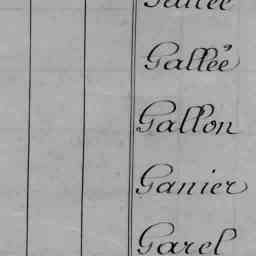 Gallée
Gallon
Ganier
Garel